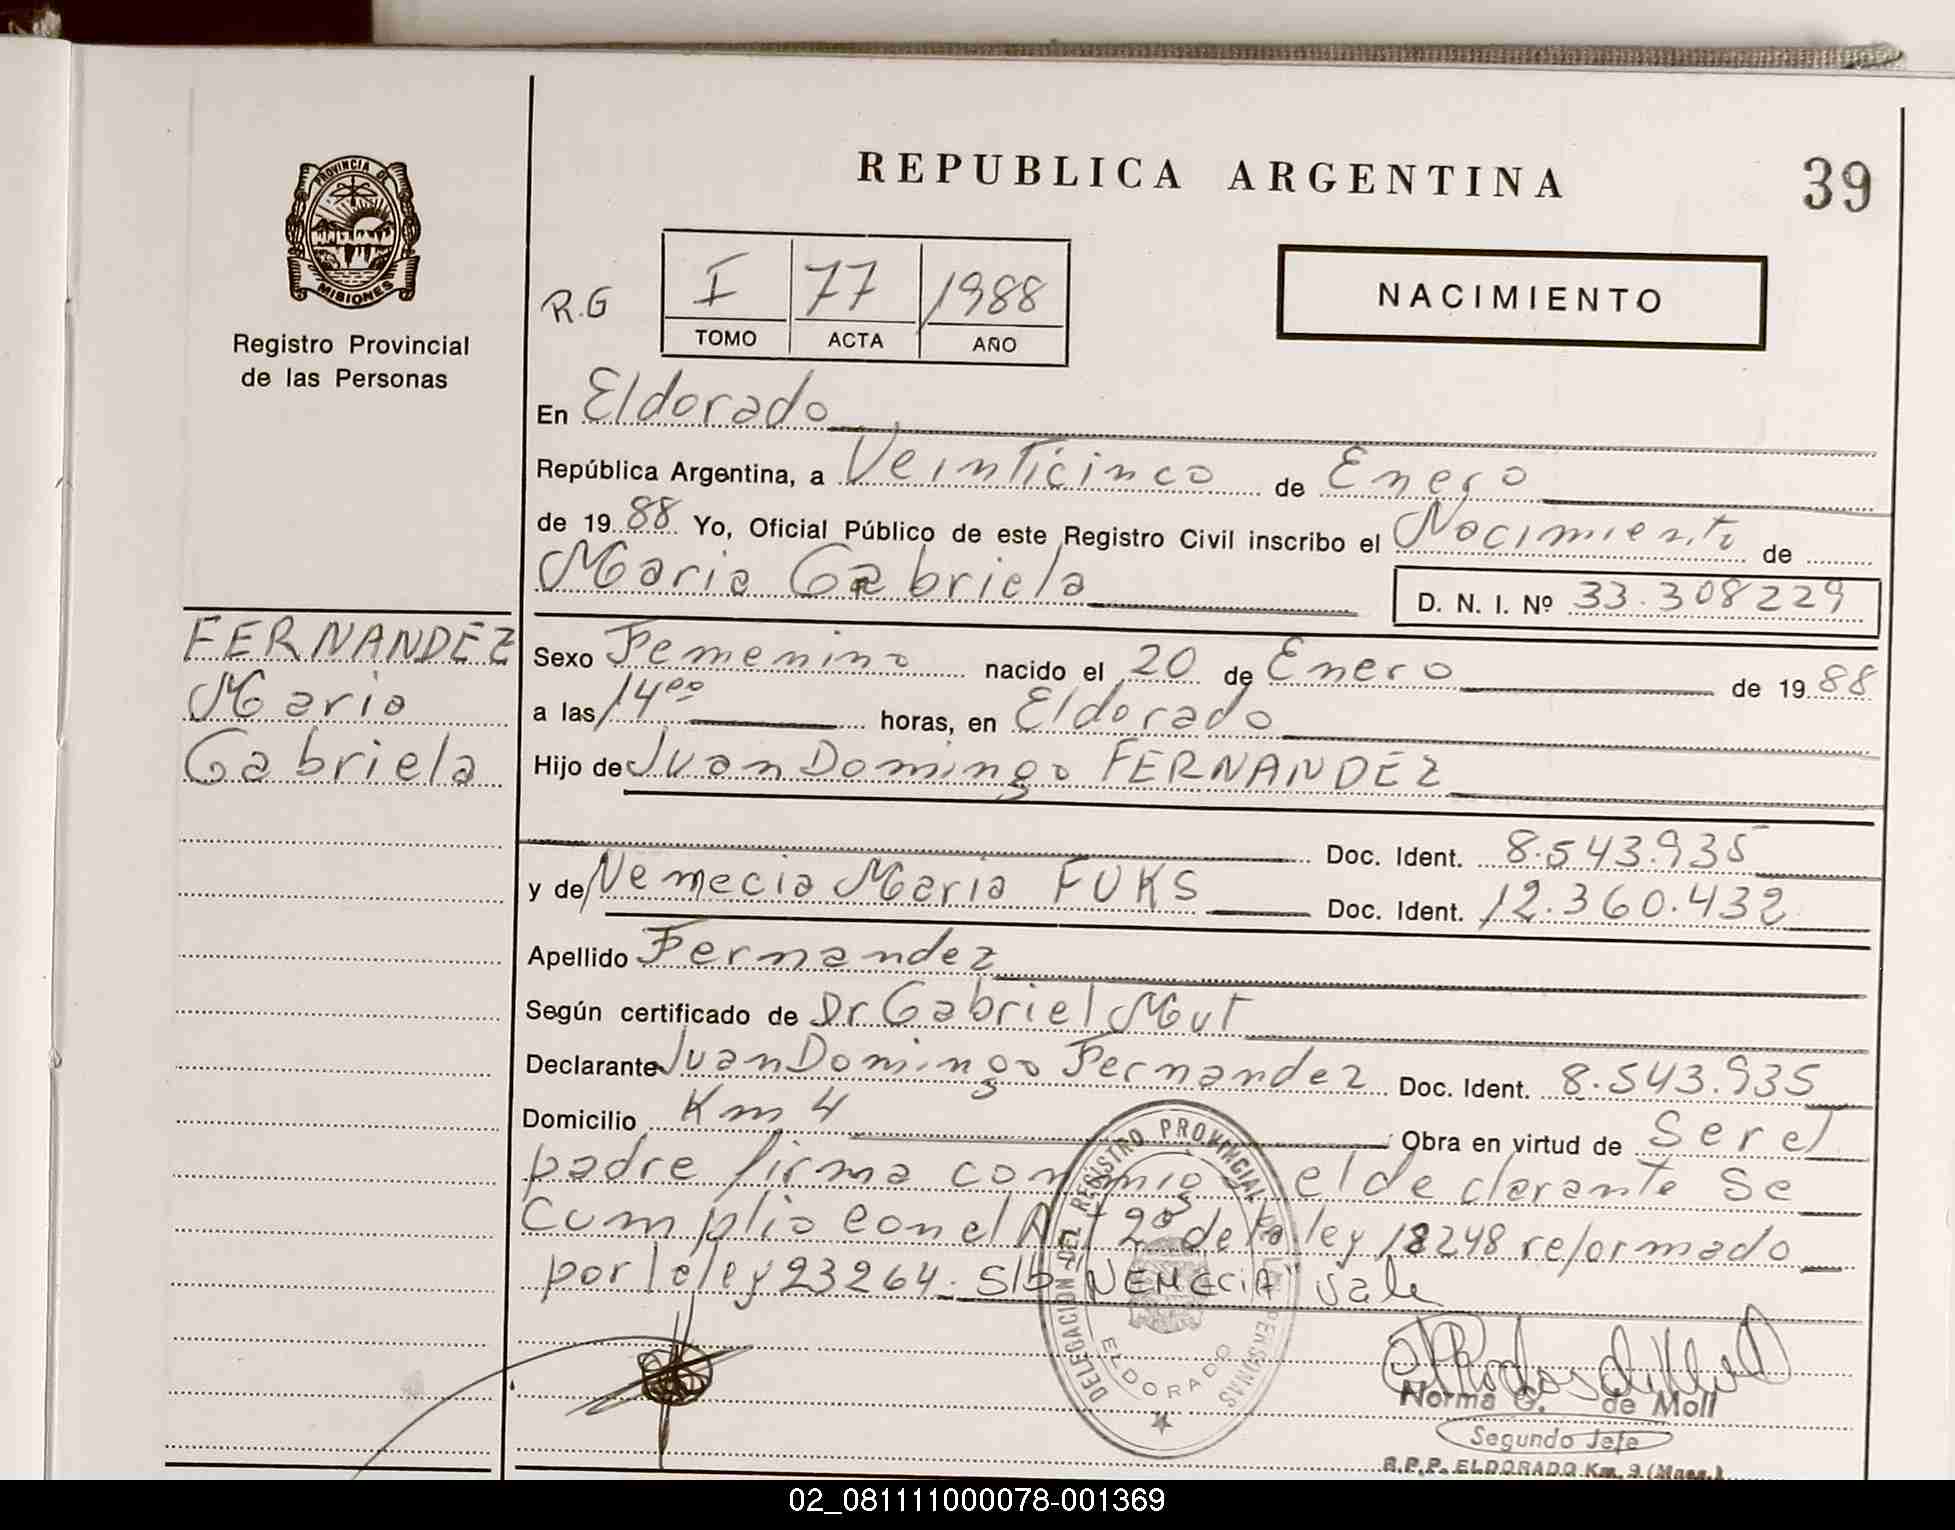 REPUBLICA ARGENTINA
39
PROVINCIA DE
MISIONES
Registro Provincial
de las Personas
R.G
I 77 1988
TOMO ACTA AÑO
NACIMIENTO
En Eldorado
República Argentina, a Veinticinco de Enero
de 19 88 Yo, Oficial Público de este Registro Civil inscribo el Nacimiento de
Maria Gabriela
D. N. I. Nº 33.308229
FERNANDEZ
Maria
Gabriela
Sexo Femenino nacido el 20 de Enero de 19 88
a las 14⁰⁰ horas, en Eldorado
Hijo de Juan Domingo FERNANDEZ
Doc. Ident. 8.543.935
y de Nemecia Maria FUKS Doc. Ident. 12.360.432
Apellido Fernandez
Según certificado de Dr Gabriel Mut
Declarante Juan Domingo Fernandez Doc. Ident. 8.543.935
Domicilio Km 4 Obra en virtud de Ser el
padre firma conmigo el declarante Se
Cumplio con el Art 2º de la ley 18248 reformado
por la ley 23264. S/b "NEMECIA" vale
DELEGACION DEL REGISTRO PROVINCIAL DE LAS PERSONAS
ELDORADO
Norma G. de Moll
Segundo Jefe
R.P.P. ELDORADO Km. 9 (Mnes.)
02_081111000078-001369